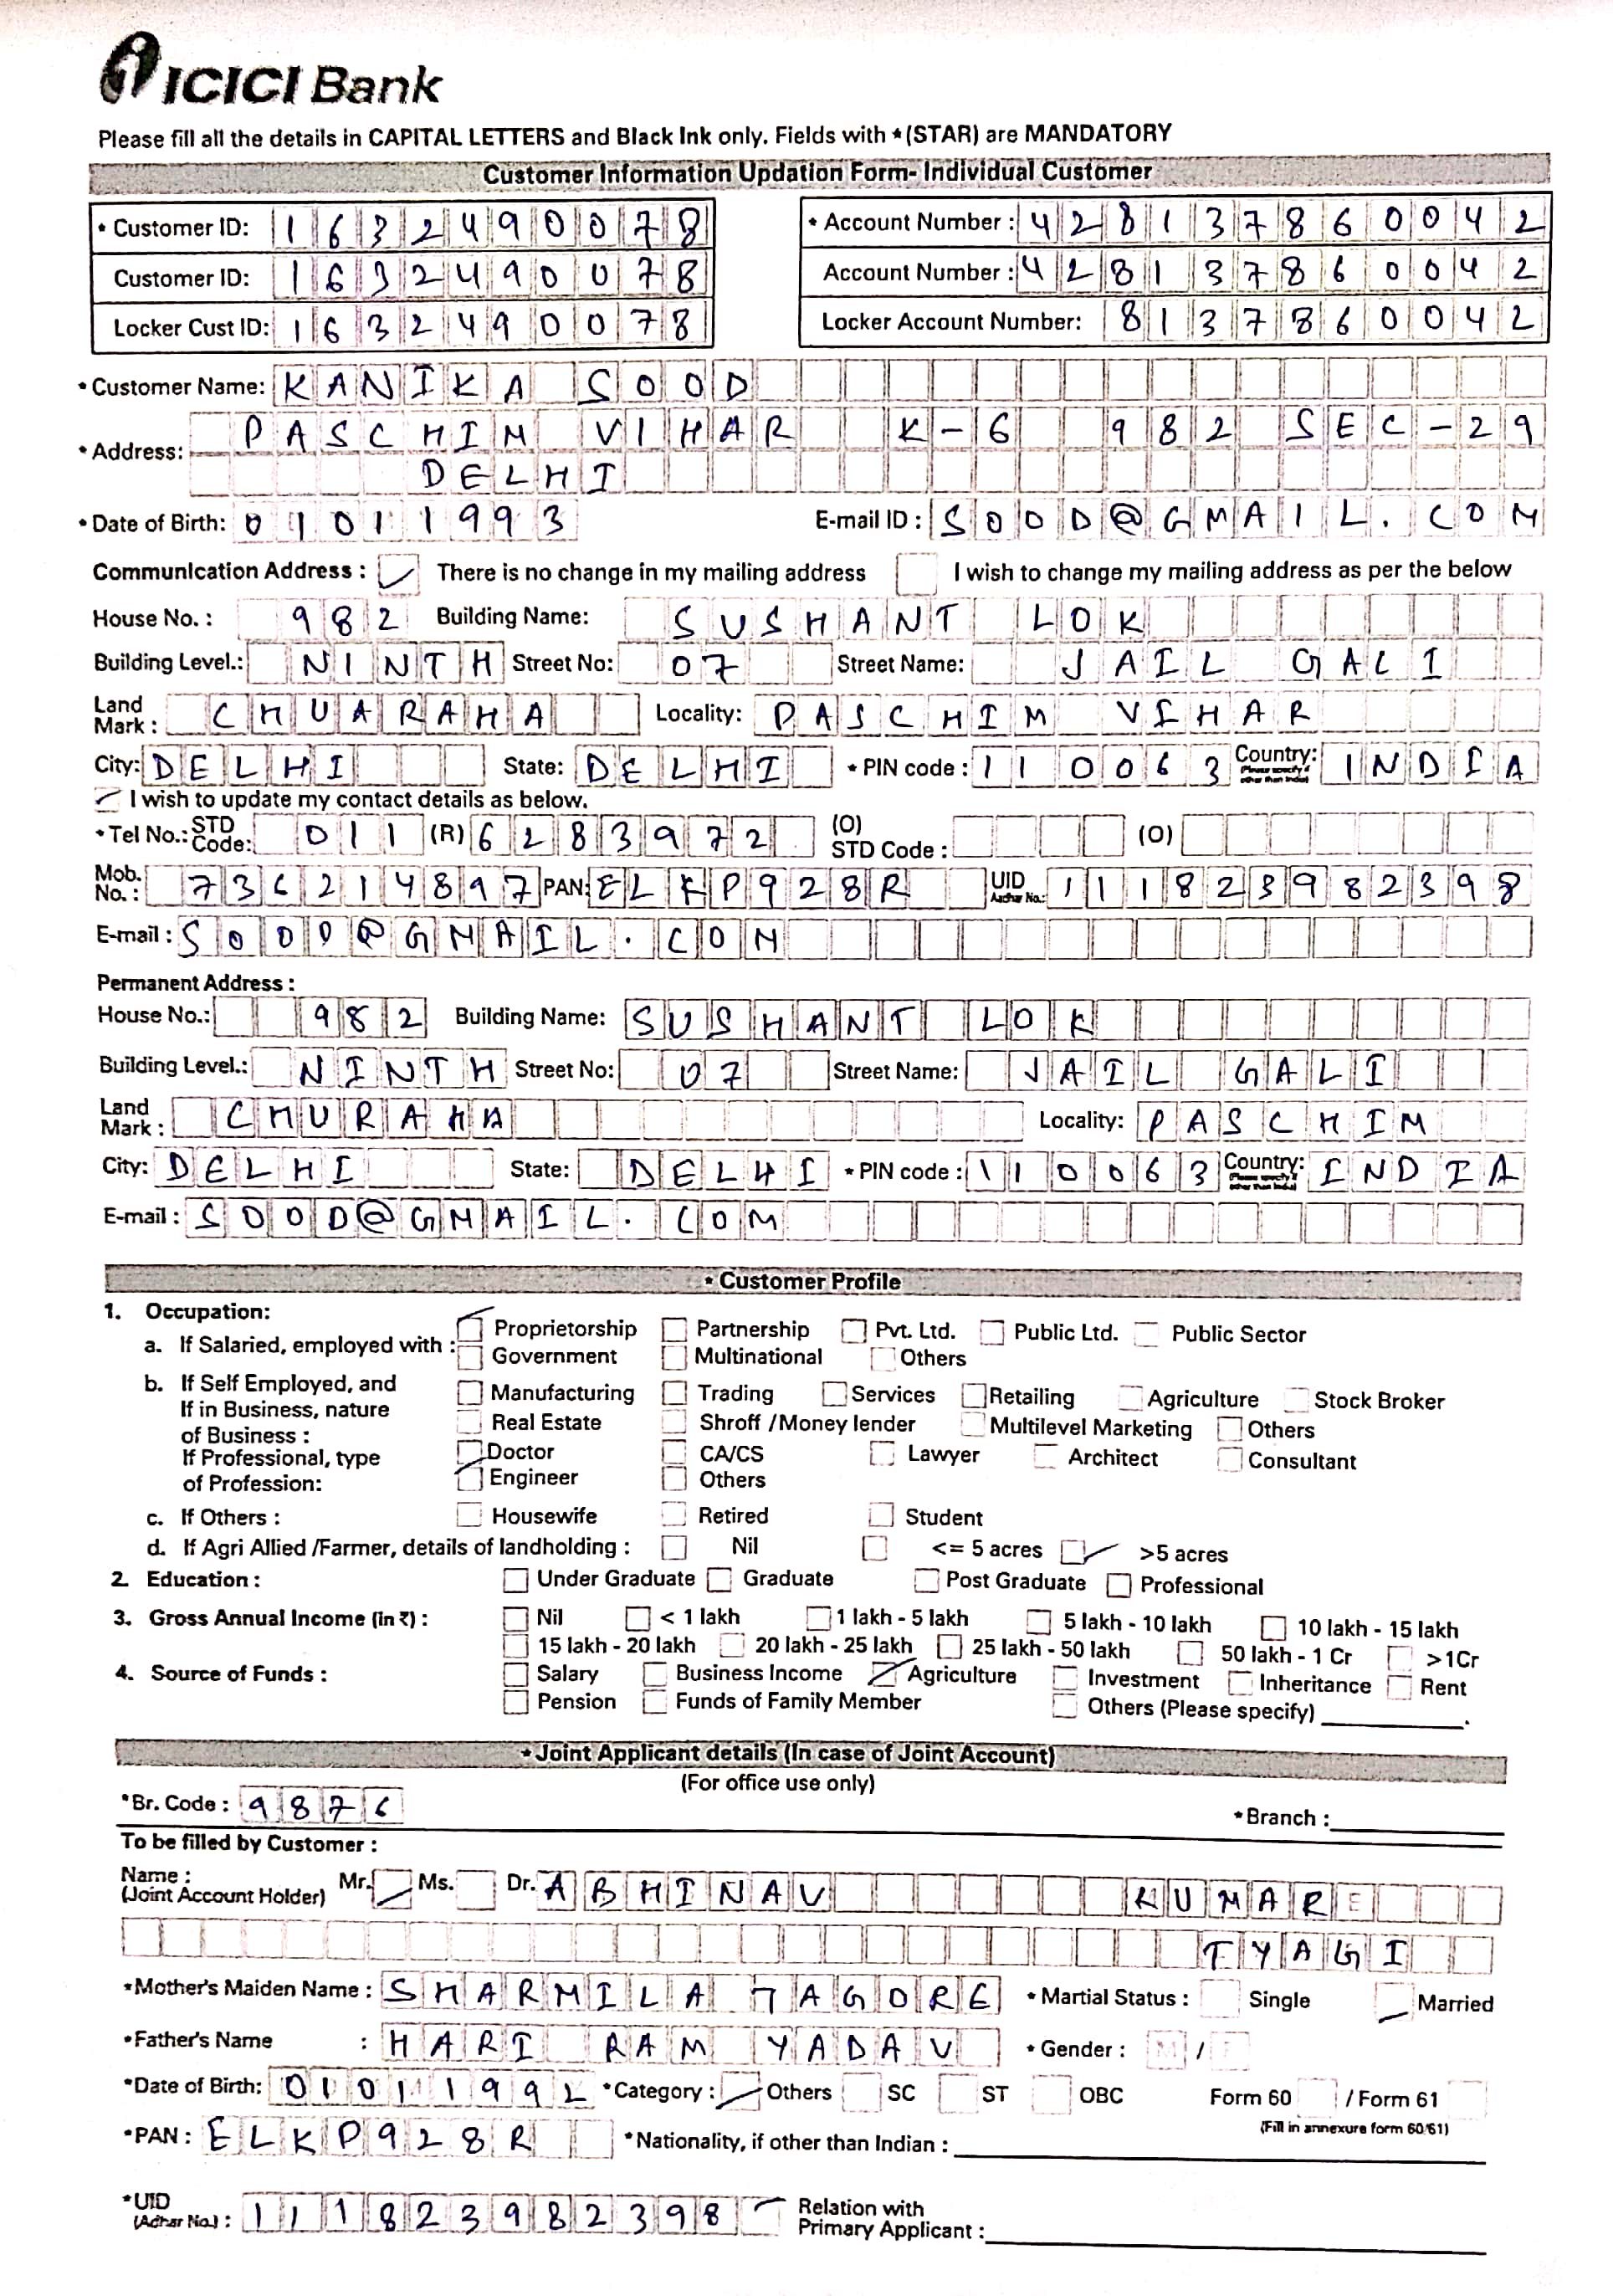 ICICI Bank
Please fill all the details in CAPITAL LETTERS and Black Ink only. Fields with * (STAR) are MANDATORY
Customer Information Updation Form- Individual Customer
* Customer ID: 1632490078 * Account Number : 428137860042
Customer ID: 1632490078 Account Number : 428137860042
Locker Cust ID: 1632490078 Locker Account Number: 8137860042
* Customer Name: KANIKA SOOD
* Address: PASCHIM VIHAR K-6 982 SEC-29
DELHI
* Date of Birth: 01011993 E-mail ID : SOOD@GMAIL.COM
Communication Address : There is no change in my mailing address I wish to change my mailing address as per the below
House No. : 982 Building Name: SUSHANT LOK
Building Level.: NINTH Street No: 07 Street Name: JAIL GALI
Land Mark : CHUARAHA Locality: PASCHIM VIHAR
City: DELHI State: DELHI * PIN code : 110063 Country: (Please specify if other than India) INDIA
I wish to update my contact details as below.
* Tel No.: STD Code: 011 (R) 6283972 (O) STD Code : (O)
Mob. No. : 736214897 PAN: ELKP928R UID Aadhar No.: 111823982398
E-mail : SOOD@GMAIL.COM
Permanent Address :
House No.: 982 Building Name: SUSHANT LOK
Building Level.: NINTH Street No: 07 Street Name: JAIL GALI
Land Mark : CHURAHA Locality: PASCHIM
City: DELHI State: DELHI * PIN code : 110063 Country: (Please specify if other than India) INDIA
E-mail : SOOD@GMAIL.COM
* Customer Profile
1. Occupation:
a. If Salaried, employed with : Proprietorship Partnership Pvt. Ltd. Public Ltd. Public Sector
Government Multinational Others
b. If Self Employed, and If in Business, nature of Business : Manufacturing Trading Services Retailing Agriculture Stock Broker
Real Estate Shroff /Money lender Multilevel Marketing Others
If Professional, type of Profession: Doctor CA/CS Lawyer Architect Consultant
Engineer Others
c. If Others : Housewife Retired Student
d. If Agri Allied /Farmer, details of landholding : Nil <= 5 acres >5 acres
2. Education : Under Graduate Graduate Post Graduate Professional
3. Gross Annual Income (in ₹) : Nil < 1 lakh 1 lakh - 5 lakh 5 lakh - 10 lakh 10 lakh - 15 lakh
15 lakh - 20 lakh 20 lakh - 25 lakh 25 lakh - 50 lakh 50 lakh - 1 Cr >1Cr
4. Source of Funds : Salary Business Income Agriculture Investment Inheritance Rent
Pension Funds of Family Member Others (Please specify)
* Joint Applicant details (In case of Joint Account)
(For office use only)
*Br. Code : 9876 * Branch :
To be filled by Customer :
Name : (Joint Account Holder) Mr. Ms. Dr. ABHINAV KUMAR
TYAGI
*Mother's Maiden Name : SHARMILA TAGORE * Martial Status : Single Married
*Father's Name : HARI RAM YADAV * Gender : M / F
*Date of Birth: 01011992 *Category : Others SC ST OBC Form 60 / Form 61
(Fill in annexure form 60/61)
*PAN : ELKP928R *Nationality, if other than Indian :
*UID (Adhar No.) : 111823982398 Relation with Primary Applicant :